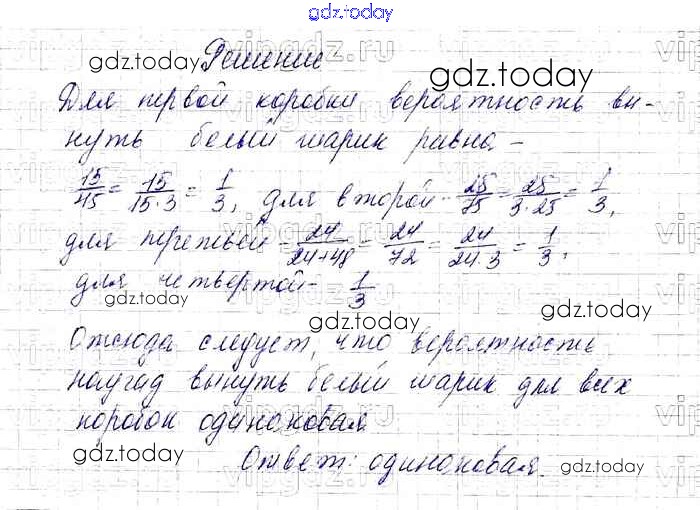 gdz.today
gdz.today Решение
gdz.today
Для первой коробки вероятность вы-
нуть белый шарик равна -
15/45 = 15/15·3 = 1/3, для второй - 25/75 = 25/3·25 = 1/3,
для третьей - 24/24+48 = 24/72 = 24/24·3 = 1/3,
для четвертой - 1/3
gdz.today gdz.today gdz.today
Отсюда следует, что вероятность
наугад вынуть белый шарик для всех
коробок одинаковая
gdz.today Ответ: одинаковая. gdz.today